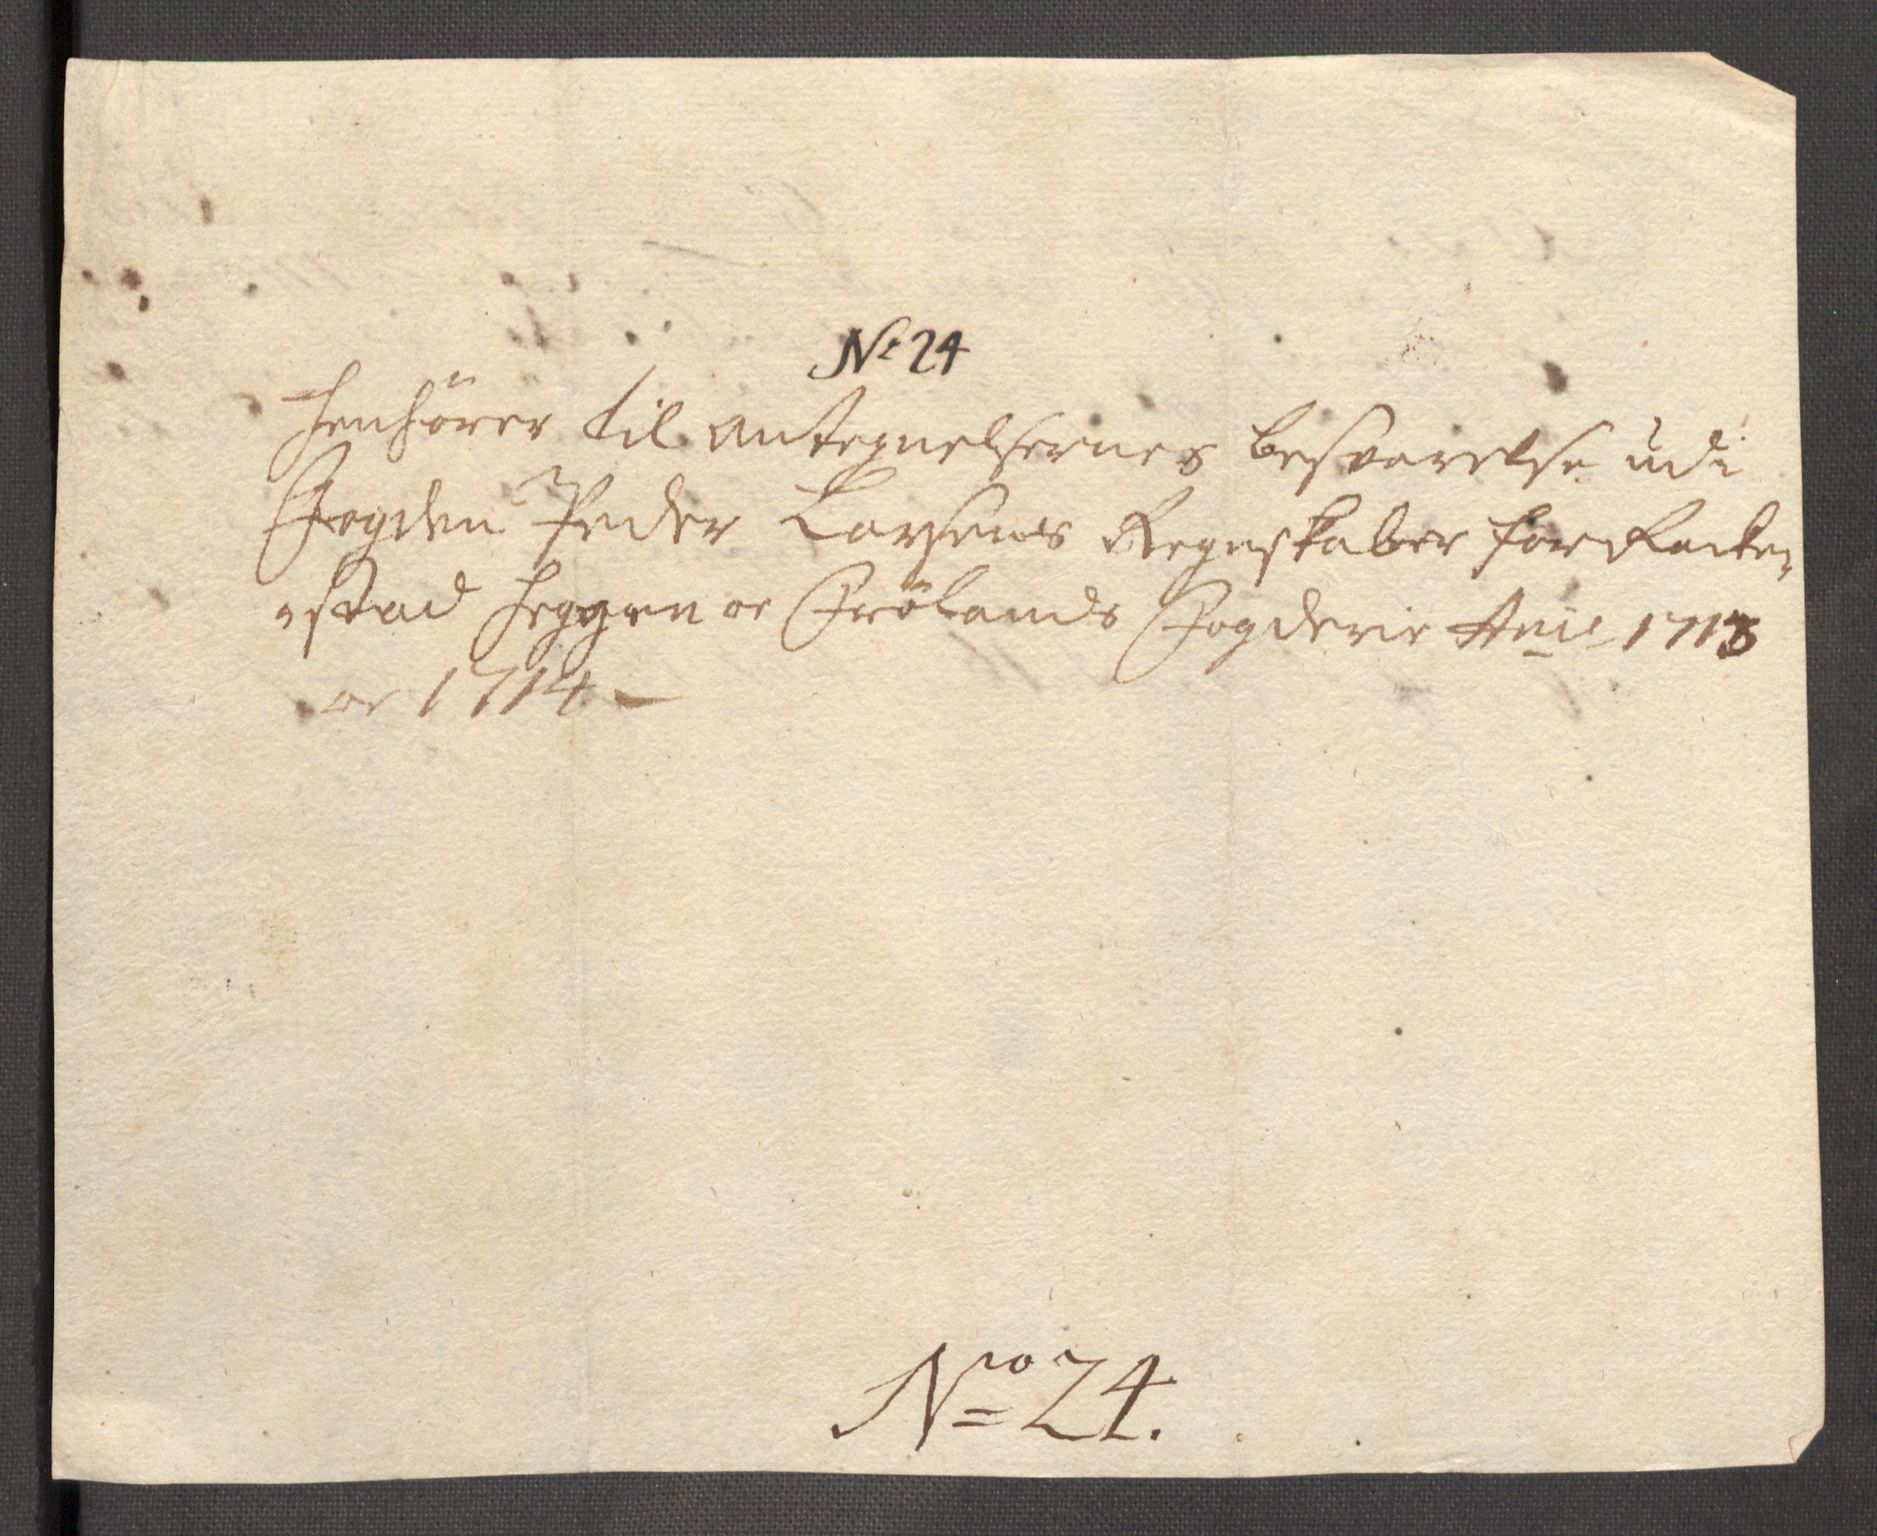 No 24
henhörer til Antegnelsernes besvarelse udi
Fogden Peder Larsens Regnskaber for Racke,,
,,stad Heggen oc Frölands Fogderie Ao 1713
oc 1714 —
Nro 24.